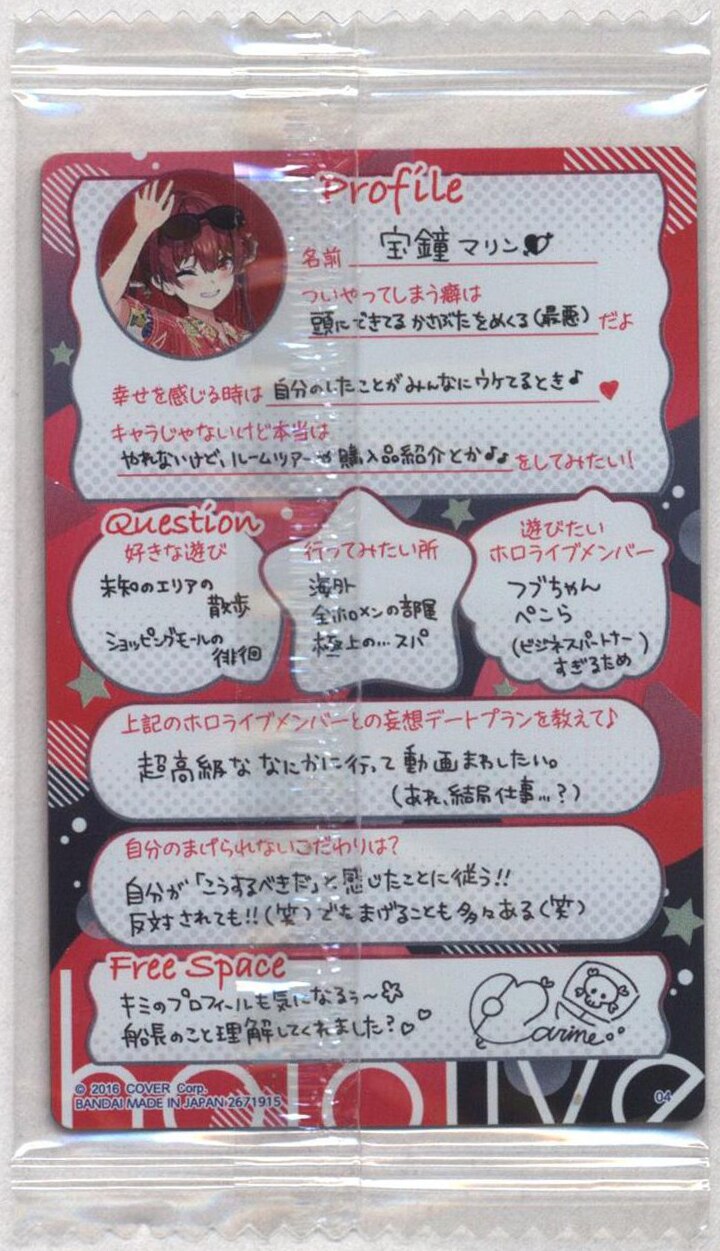 Profile
名前 宝鐘マリン
ついやってしまう癖は
頭にできてるかさぶたをめくる(最悪)だよ
幸せを感じる時は 自分のしたことがみんなにウケてるとき♪
キャラじゃないけど本当は
やれないけど、ルームツアーや購入品紹介とか♪♪をしてみたい!
Question
好きな遊び
未知のエリアの
散歩
ショッピングモールの
徘徊
行ってみたい所
海外
全ホロメンの部屋
極上の…スパ
遊びたい
ホロライブメンバー
フブちゃん
ぺこら
(ビジネスパートナー)
すぎるため
上記のホロライブメンバーとの妄想デートプランを教えて♪
超高級ななにかに行って動画まわしたい。
(あれ、結局仕事…?)
自分のまげられないこだわりは?
自分が「こうするべきだ」と感じたことに従う!!
反対されても!!(笑)でもまげることも多々ある(笑)
Free Space
キミのプロフィールも気になるぅ~
船長のこと理解してくれました?♡♡
Marine
hololive
© 2016 COVER Corp.
BANDAI MADE IN JAPAN 2671915
04